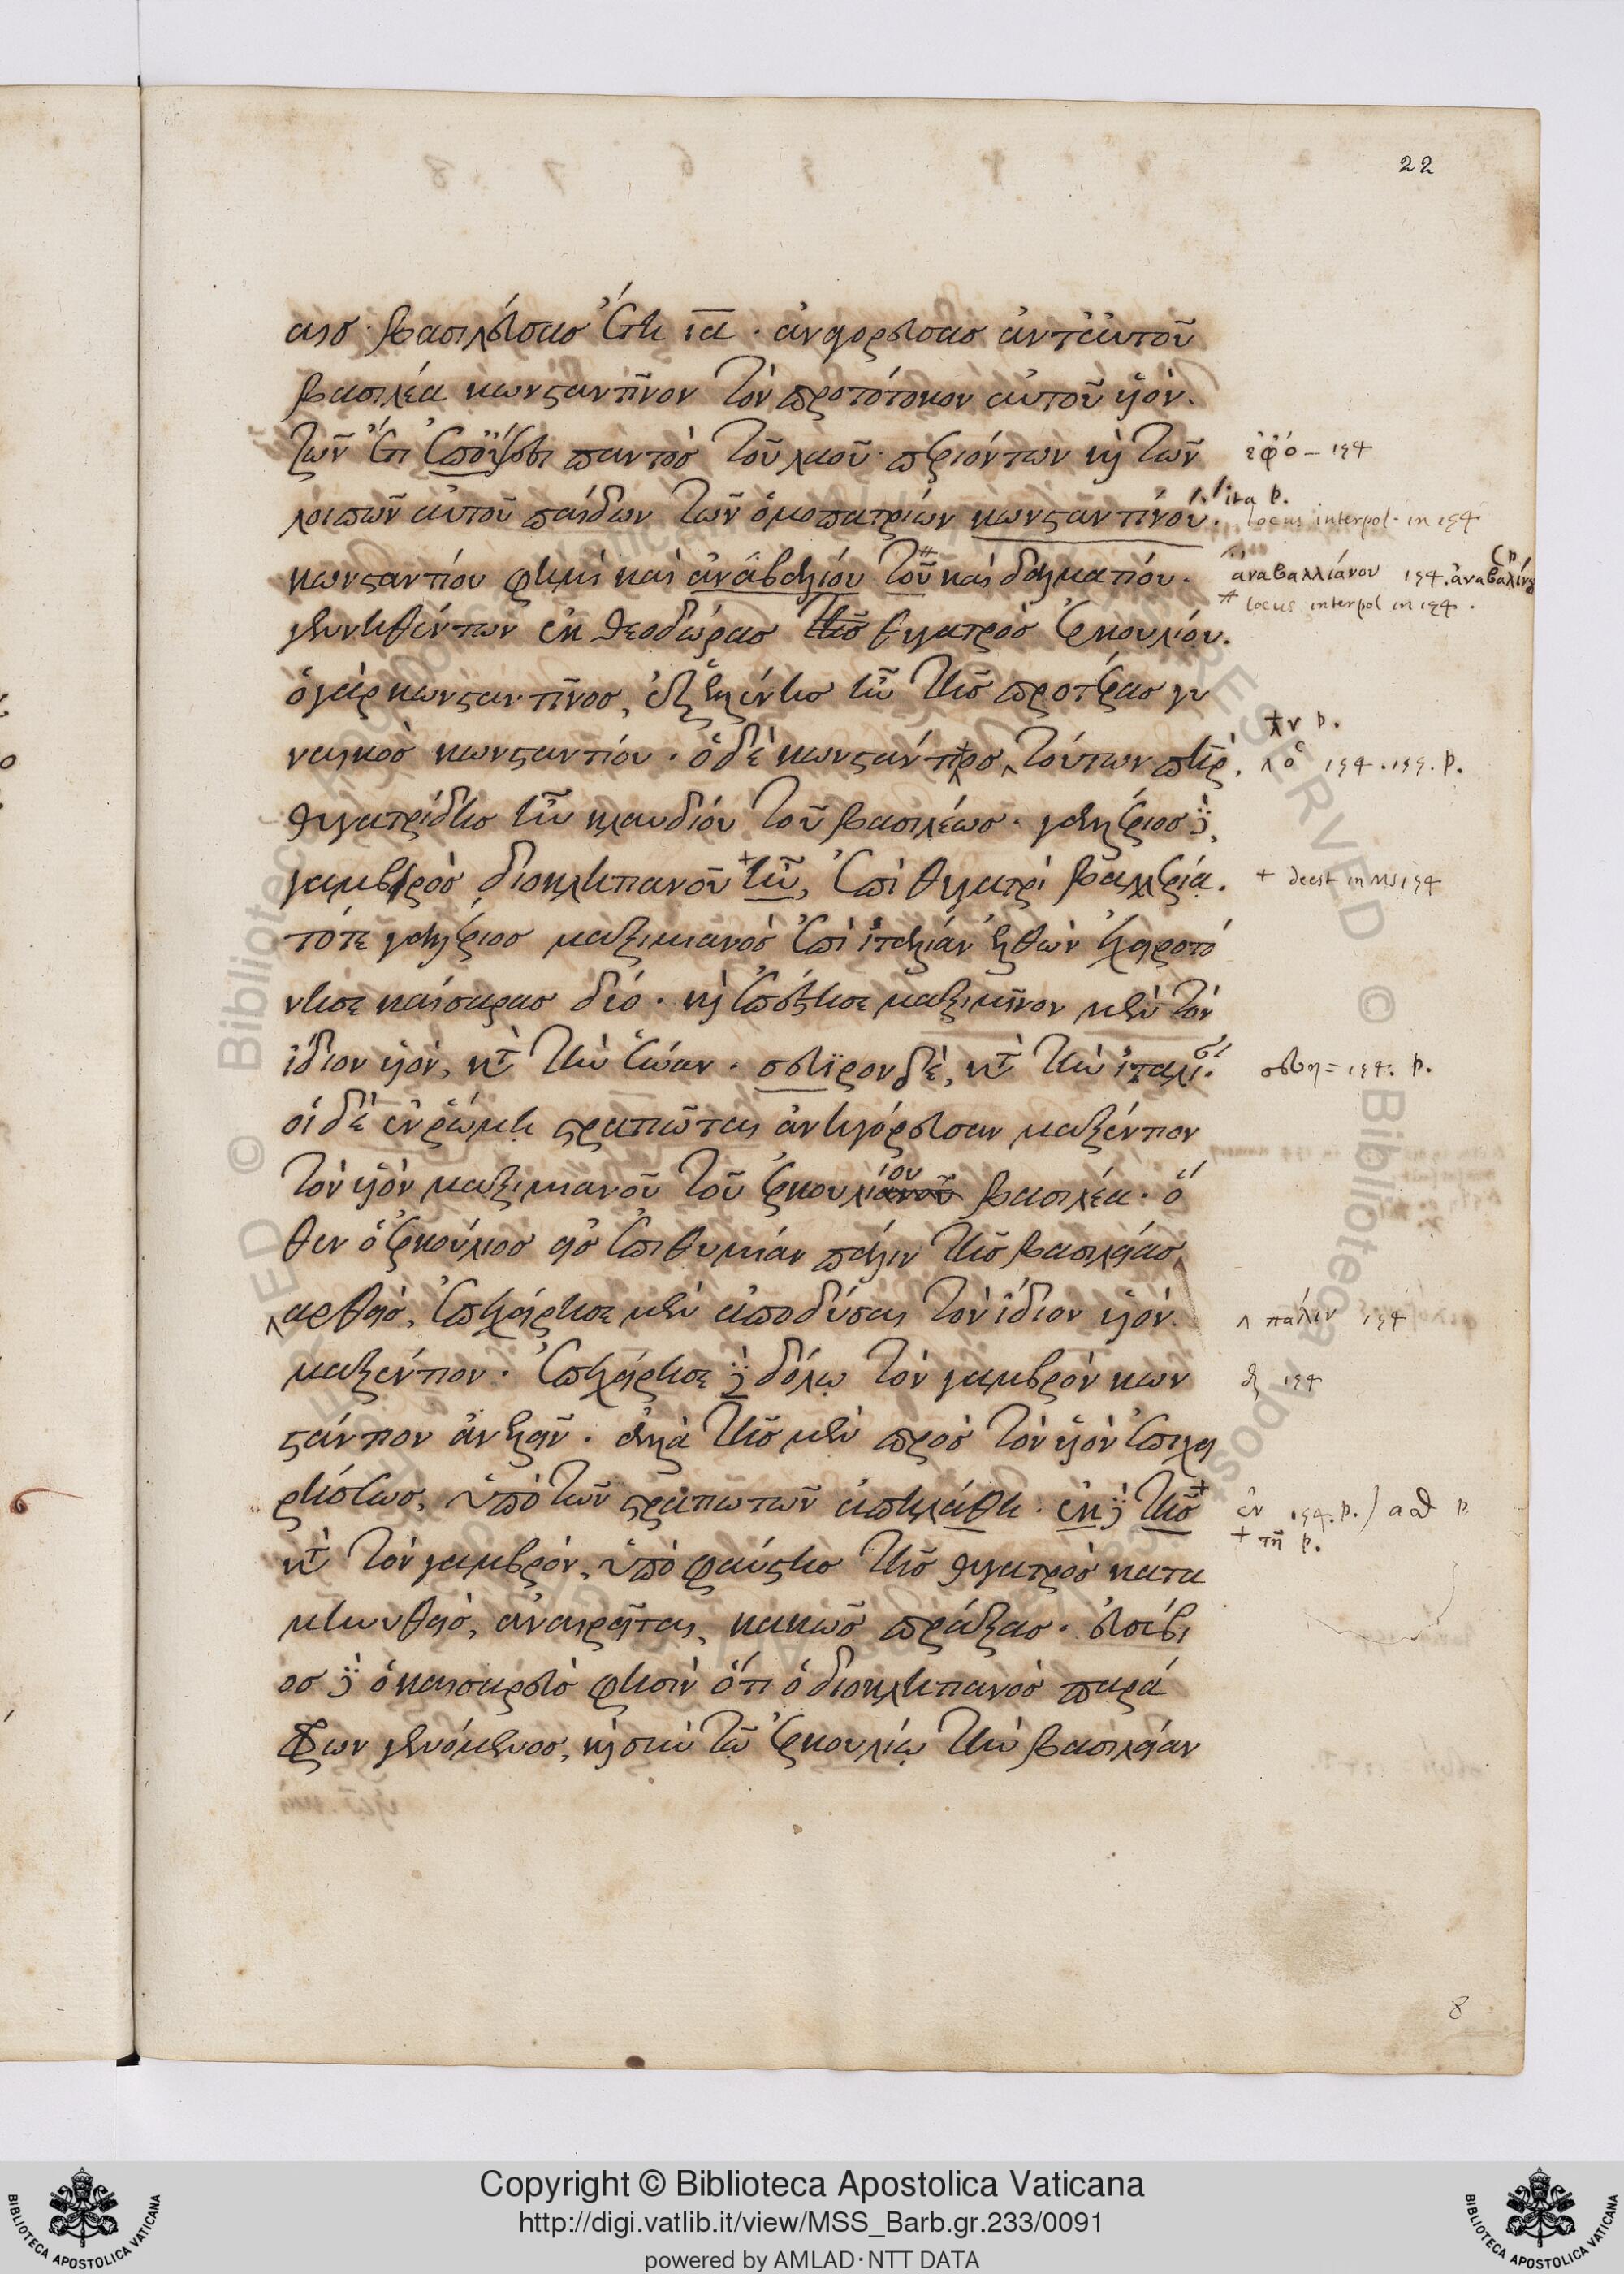 22
αις. βασιλεύσας ἔτη ια. ἀναγορεύσας ἀντ' αὐτοῦ
βασιλέα κωνσταντῖνον τὸν προτότοκον αὐτοῦ υἱόν.
τῶν ἔτι παντὸς τοῦ λαοῦ περιόντων καὶ τῶν
λοιπῶν αὐτοῦ παίδων τῶν ὁμοπατρίων κωνσταντίνου.
κωνσταντίου φημὶ καὶ ἀναβαλιόυ τοῦ καὶ δαλματίου.
γεννηθέντων ἐκ θεοδώρας τῆς θυγατρὸς ἑρκουλίου.
ὁ γὰρ κωνσταντῖνος, ἐξ ἑλένης ἦν τῆς προτέρας γυ
ναικὸς κωνσταντίου. ὁ δὲ κωνστάντιος, τούτων πατὴρ,
θυγατρίδης ἦν κλαυδίου τοῦ βασιλέως. γαλέριος δὲ,
γαμβρὸς διοκλητιανοῦ ἦν, ἐπὶ θυγατρὶ βαλλερία.
τότε γαλέριος μαξιμιανὸς ἐπὶ ἰταλίαν ἐλθὼν ἐχειροτό
νησε καίσαρας δύο. καὶ ἐπέστησε μαξιμῖνον μὲν τὸν
ἴδιον υἱόν, κατὰ τὴν ἑώαν. σευῆρον δὲ, κατὰ τὴν ἰταλί.
οἱ δὲ ἐν ῥώμη στρατιῶται ἀνηγόρευσαν μαξέντιον
τὸν υἱὸν μαξιμιανοῦ τοῦ ἑρκουλίου βασιλέα. ὅ
θεν ὁ ἑρκούλιος εἰς ἐπιθυμίαν πάλιν τῆς βασιλείας
αρθεὶς, ἐπεχείρησε μὲν ἀποδύσαι τὸν ἴδιον υἱόν.
μαξέντιον. ἐπεχείρησε δὲ δόλῳ τὸν γαμβρὸν κων
στάντιον ἀνελεῖν. ἀλλὰ τῆς μὲν πρὸς τὸν υἱὸν ἐπιχει
ρήσεως, ὑπὸ τῶν στρατιωτῶν ἀπηλάθη. ἐκ δὲ τῆς
κατὰ τὸν γαμβρόν, ὑπὸ φαύστης τῆς θυγατρὸς κατα
μηνυθεὶς, ἀναιρεῖται, κακῶς πράξας. εὐσέβι
ος δὲ ὁ καισαρεὺς φησὶν ὅτι ὁ διοκλητιανὸς παρά
φρων γενόμενος, καὶ σὺν τῷ ἑρκουλίῳ τὴν βασιλείαν
ἐφό – 154
ita p.
locus interpol. in 154
ἀναβαλλιάνου 154.
# locus interpol in 154.
ν p.
λ ὁ 154. 155. p.
+ deest in MS 154
σευη = 154. p.
λ πάλιν 154
δὲ 154
ἐν 154. p.
+ τῇ p.
8
Copyright © Biblioteca Apostolica Vaticana
http://digi.vatlib.it/view/MSS_Barb.gr.233/0091
powered by AMLAD·NTT DATA
BIBLIOTECA APOSTOLICA VATICANA
BIBLIOTECA APOSTOLICA VATICANA